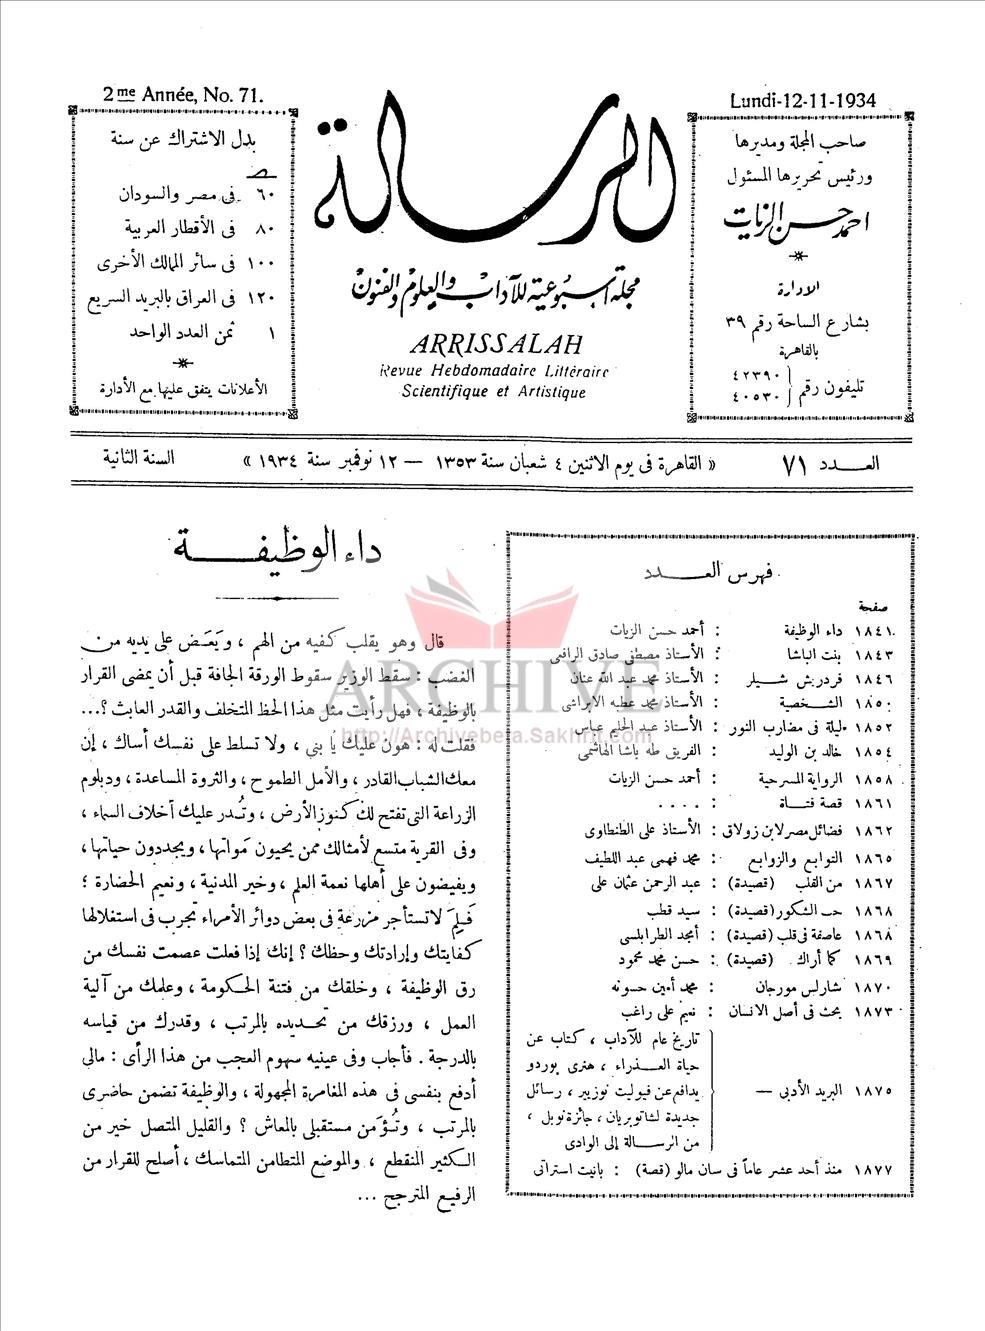 2me Année, No. 71.
بدل الاشتراك عن سنة
٦٠ فى مصر والسودان
٨٠ فى الأقطار العربية
١٠٠ فى سائر الممالك الأخرى
١٢٠ فى العراق بالبريد السريع
١ ثمن العدد الواحد
الأعلانات يتفق عليها مع الأدارة
الرسالة
مجلة اسبوعية للآداب والعلوم والفنون
ARRISSALAH
Revue Hebdomadaire Littéraire
Scientifique et Artistique
Lundi-12-11-1934
صاحب المجلة ومديرها
ورئيس تحريرها المسئول
احمد حسن الزيات
الادارة
بشارع الساحة رقم ٣٩
بالقاهرة
تليفون رقم ٤٢٣٩٠
٤٠٥٣٠
العـدد ٧١
« القاهرة فى يوم الاثنين ٤ شعبان سنة ١٣٥٣ — ١٢ نوفمبر سنة ١٩٣٤ »
السنة الثانية
فهرس العـدد
صفحة
١٨٤١ داء الوظيفة : أحمد حسن الزيات
١٨٤٣ بنت الباشا : الأستاذ مصطفى صادق الرافعى
١٨٤٦ فردريش شـيلر : الأستاذ محمد عبد الله عنان
١٨٥٠ الشـخصية : الأستاذ محمد عطيه الابراشى
١٨٥٢ ليلة فى مضارب النور : الأستاذ عبد الحليم عباس
١٨٥٤ خالد بن الوليد : الفريق طه باشا الهاشمى
١٨٥٨ الرواية المسرحية : أحمد حسن الزيات
١٨٦١ قصة فتـاة : . . . .
١٨٦٢ فضائل مصر لابن زولاق : الأستاذ على الطنطاوى
١٨٦٥ التوابع والزوابع : محمد فهمى عبد اللطيف
١٨٦٧ من القلب (قصيدة) : عبد الرحمن عثمان على
١٨٦٨ حب الشكور (قصيدة) : سيد قطب
١٨٦٨ عاصفة فى قلب (قصيدة) : أمجد الطرابلسى
١٨٦٩ كما أراك (قصيدة) : حسن محمد محمود
١٨٧٠ شارلس مورجان : محمد أمين حسونه
١٨٧٣ بحث فى أصل الانسان : نعيم على راغب
١٨٧٥ البريد الأدبى — تاريخ عام للآداب ، كتاب عن
حياة العـذراء ، هنرى بوردو
يدافع عن فيوليت نوزيير ، رسائل
جديدة لشاتوبريان ، جائزة نوبل ،
من الرسـالة إلى الوادى
١٨٧٧ منذ أحد عشر عاماً فى سان مالو (قصة) : بانيت استراتى
داء الوظيفـة
قال وهو يقلب كفيه من الهم ، ويَعَـض على يديه من
الغضب : سقط الوزير سقوط الورقة الجافة قبل أن يمضى القرار
بالوظيفة ، فهل رأيت مثل هذا الحظ المتخلف والقدر العابث ؟...
فقلت له : هون عليك يا بني ، ولا تسلط على نفسك أساك ، إن
معك الشباب القادر ، والأمل الطموح ، والثروة المساعدة ، ودبلوم
الزراعة التى تفتح لك كنوز الأرض ، وتُـدر عليك أخلاف السماء ،
وفى القرية متسع لأمثالك ممن يحيون مَواتها ، ويجددون حياتها ،
ويفيضون على أهلها نعمة العلم ، وخير المدنية ، ونعيم الحضارة ؛
فَـلِمَ لا تستأجر مزرعة فى بعض دوائر الأمراء تجرب فى استغلالها
كفايتك وإرادتك وحظك ؟ إنك إذا فعلت عصمت نفسك من
رق الوظيفة ، وخلقك من فتنة الحكومة ، وعلمك من آلية
العمل ، ورزقك من تحـديده بالمرتب ، وقدرك من قياسه
بالدرجة . فأجاب وفى عينيه سهوم العجب من هذا الرأى : مالى
أدفع بنفسى فى هذه المغامرة المجهولة ، والوظيفة تضمن حاضرى
بالمرتب ، وتُـؤَمن مستقبلى بالمعاش ؟ والقليل المتصل خير من
الكثير المنقطع ، والموضع المتطامن المتماسك ، أصلح للقرار من
الرفيع المترجح ...
ARCHIVE
http://Archivebeta.Sakhrit.com